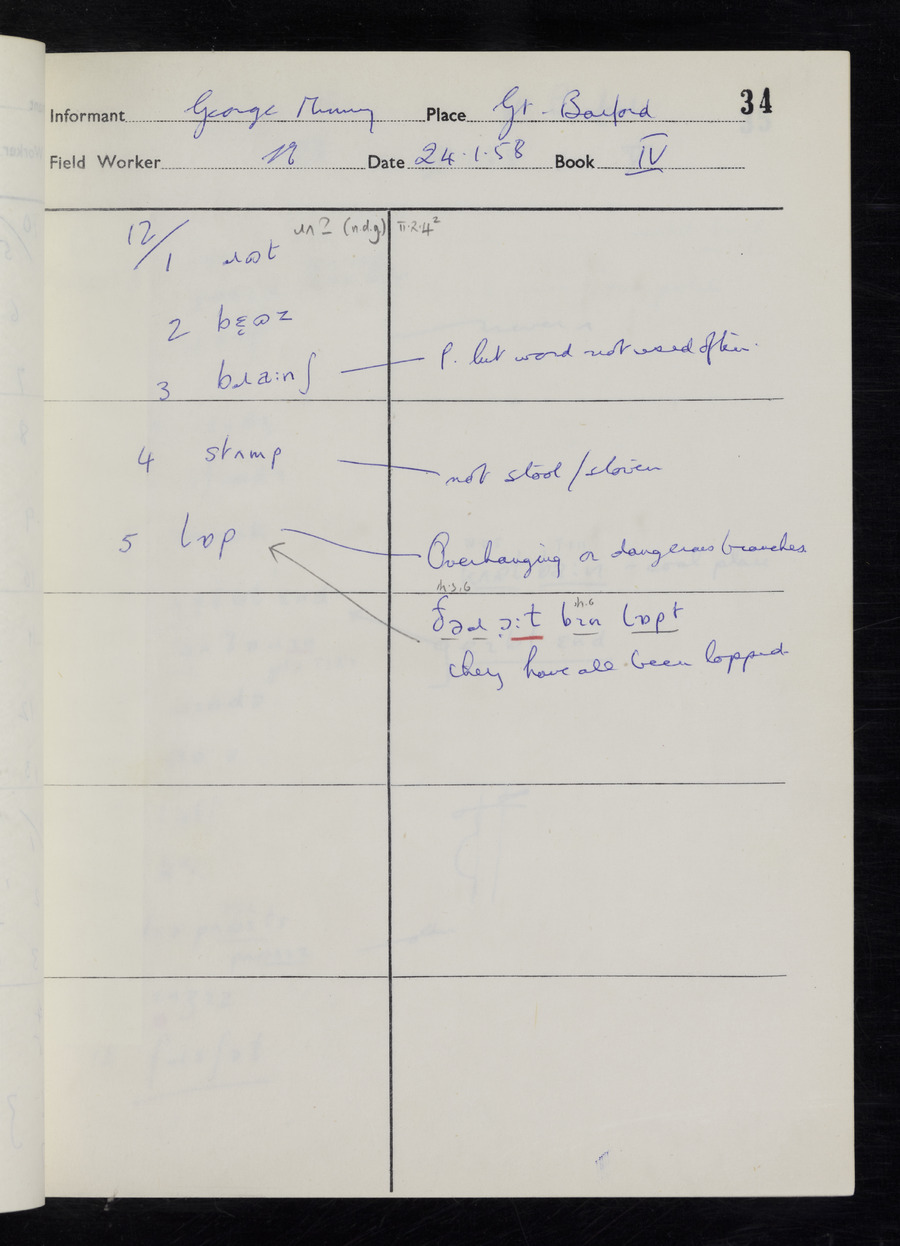 34
Informant George Place Gt. Barford
Field Worker Date 24.1.58 Book IV
(n.d.g) II.2.4²
12/1 ɹʊt
2 bɛ̨ʊz
3 bɹaːnʃ P. but word not used often.
4 stʌmp not stool / stoven
5 lɒp Overhanging or dangerous branches
ðəɹ ɔːt bɪn lɒpt
they have all been lopped